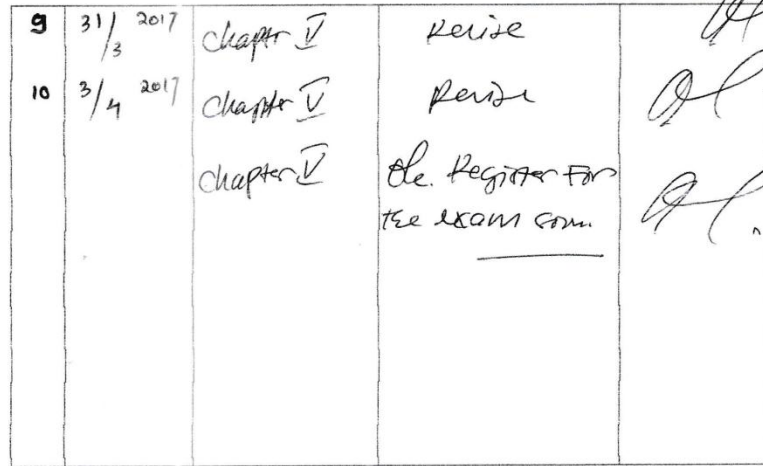 9 31/3 2017 Chaptr V Revise
10 3/4 2017 Chapter V Revise
Chapter V Ok. Register For
the exam soon.